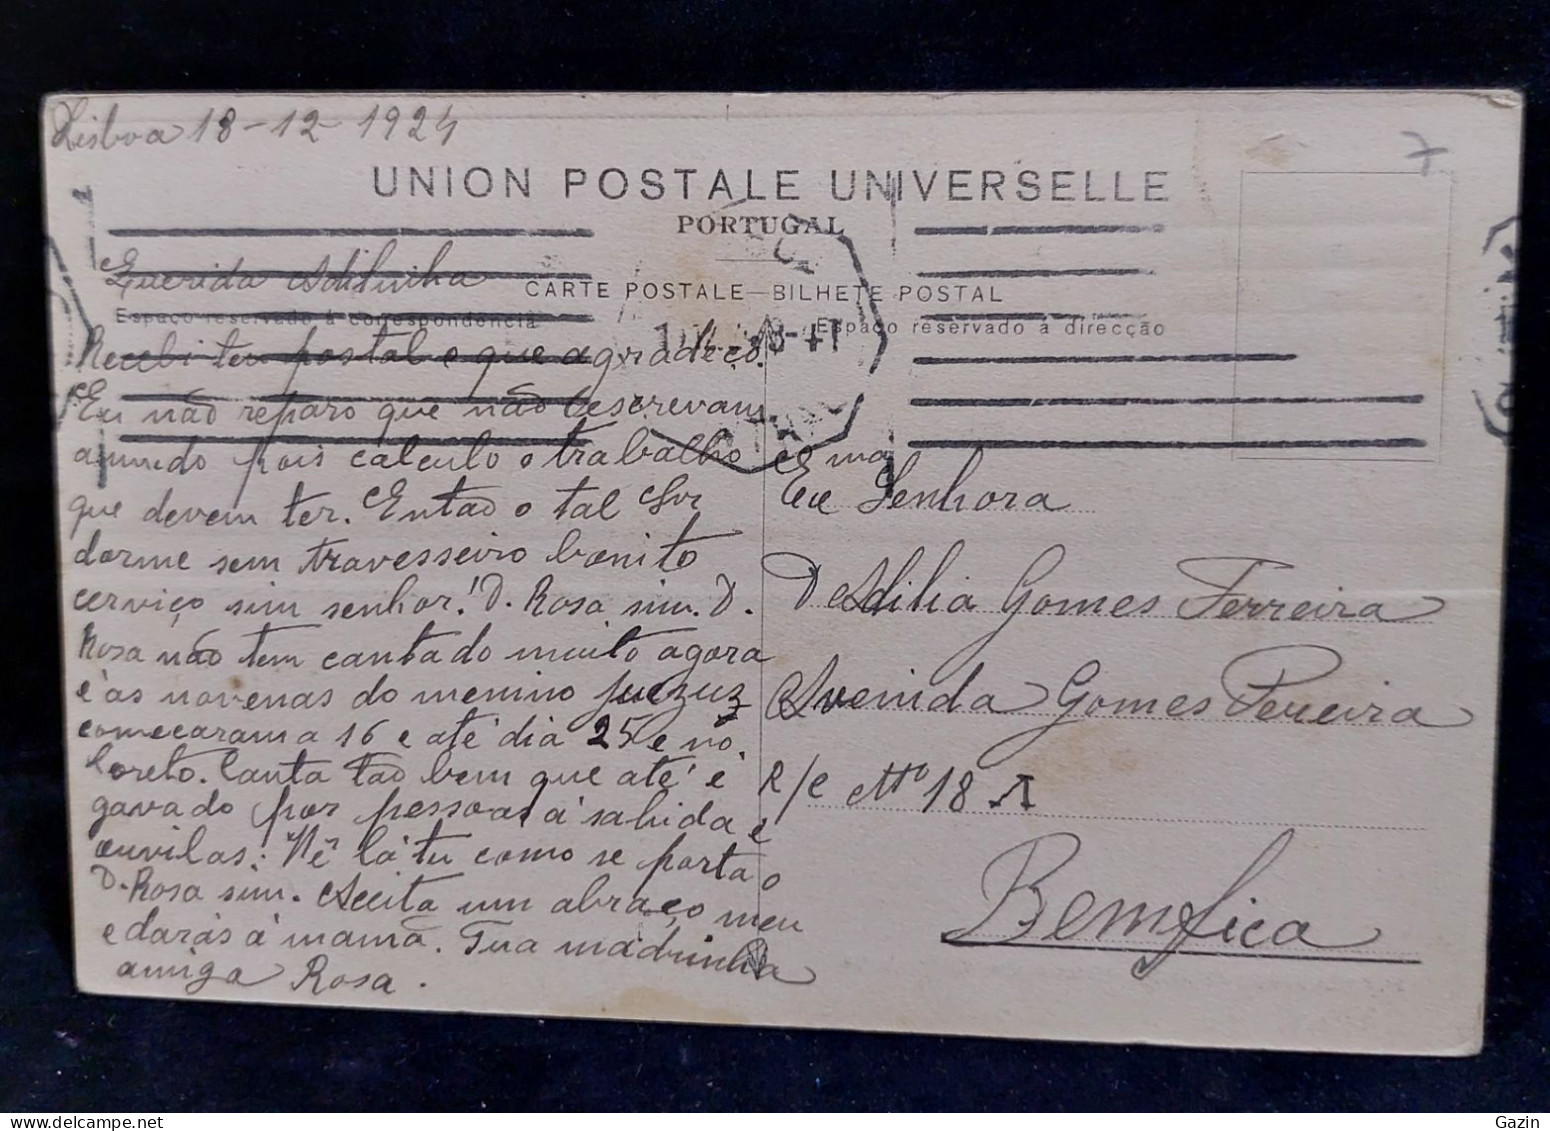 Lisboa 18-12-1924
UNION POSTALE UNIVERSELLE
PORTUGAL
CARTE POSTALE—BILHETE POSTAL
Espaço reservado á correspondencia
Espaço reservado á direcção
7
Querida Adilinha
Recebi teu postal o que agradeço.
Eu não reparo que não escrevam
amiudo pois calculo o trabalho
que devem ter. Então o tal Snr
dorme sem travesseiro bonito
cerviço sim senhor! D. Rosa sim. D.
Rosa não tem cantado muito agora
é as novenas do menino Juezuz
comecaram a 16 e até dia 25 e no
Loreto. Canta tão bem que até é
gavado por pessoas á sahida e
ouvilas: Vê lá tu como se porta o
D. Rosa sim. Aceita um abraço meu
e darás á mamã. Tua madrinha
amiga Rosa.
Exma
Senhora
D Adilia Gomes Ferreira
Avenida Gomes Pereira
R/C Nº 18
Bemfica
Gazin